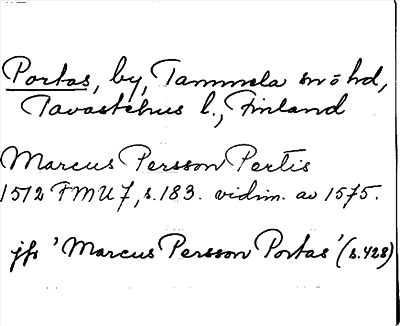 Portas, by, Tammela snöhd,
Tavastehus l., Finland
Marcus Persson Pertis
1512 FMU 7, s. 183. vidim. av 1575.
jfr 'Marcus Persson Portas' (s. 428)